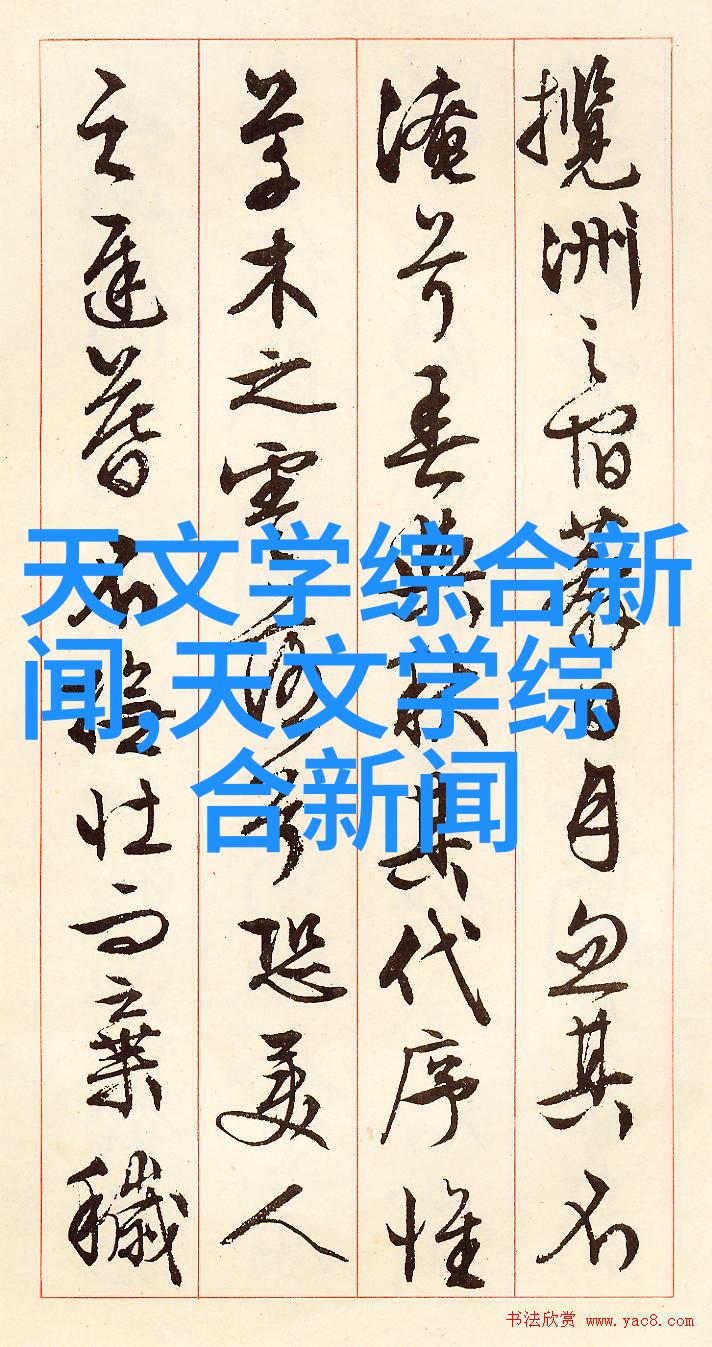 攬洲之宿莽日月忽其不
淹兮春與秋其代序惟
草木之零落兮恐美人
之遲暮不壯而棄穢
天文学综合新
闻,天文学综
合新闻
书法欣赏 www.yac8.com